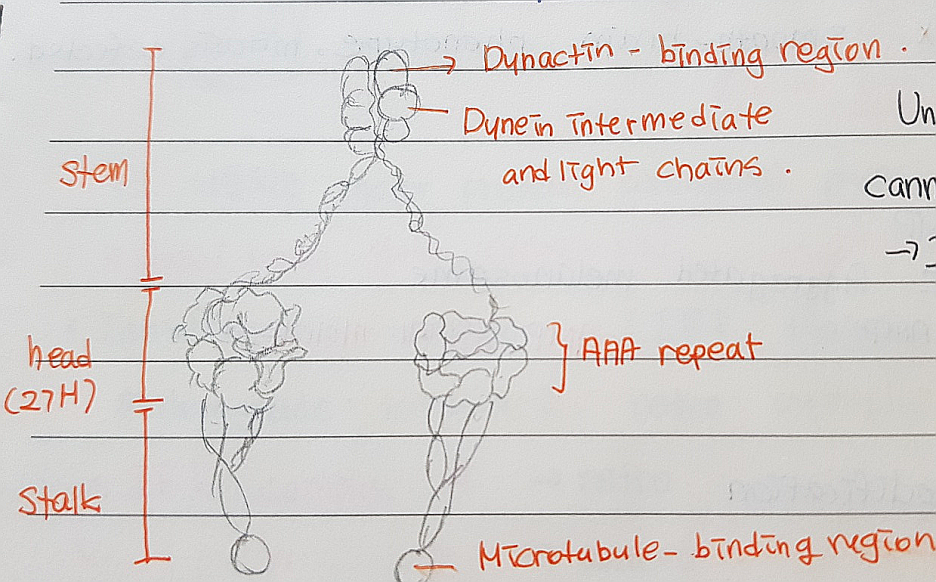 Dynactin - binding region.
Dynein intermediate
and light chains.
Un
cann
stem
→
head
(27H)
AAA repeat
Stalk
Microtubule - binding region